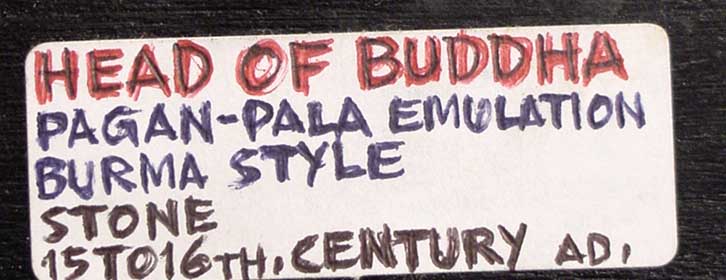 HEAD OF BUDDHA
PAGAN-PALA EMULATION
BURMA STYLE
STONE
15TO16TH. CENTURY AD.